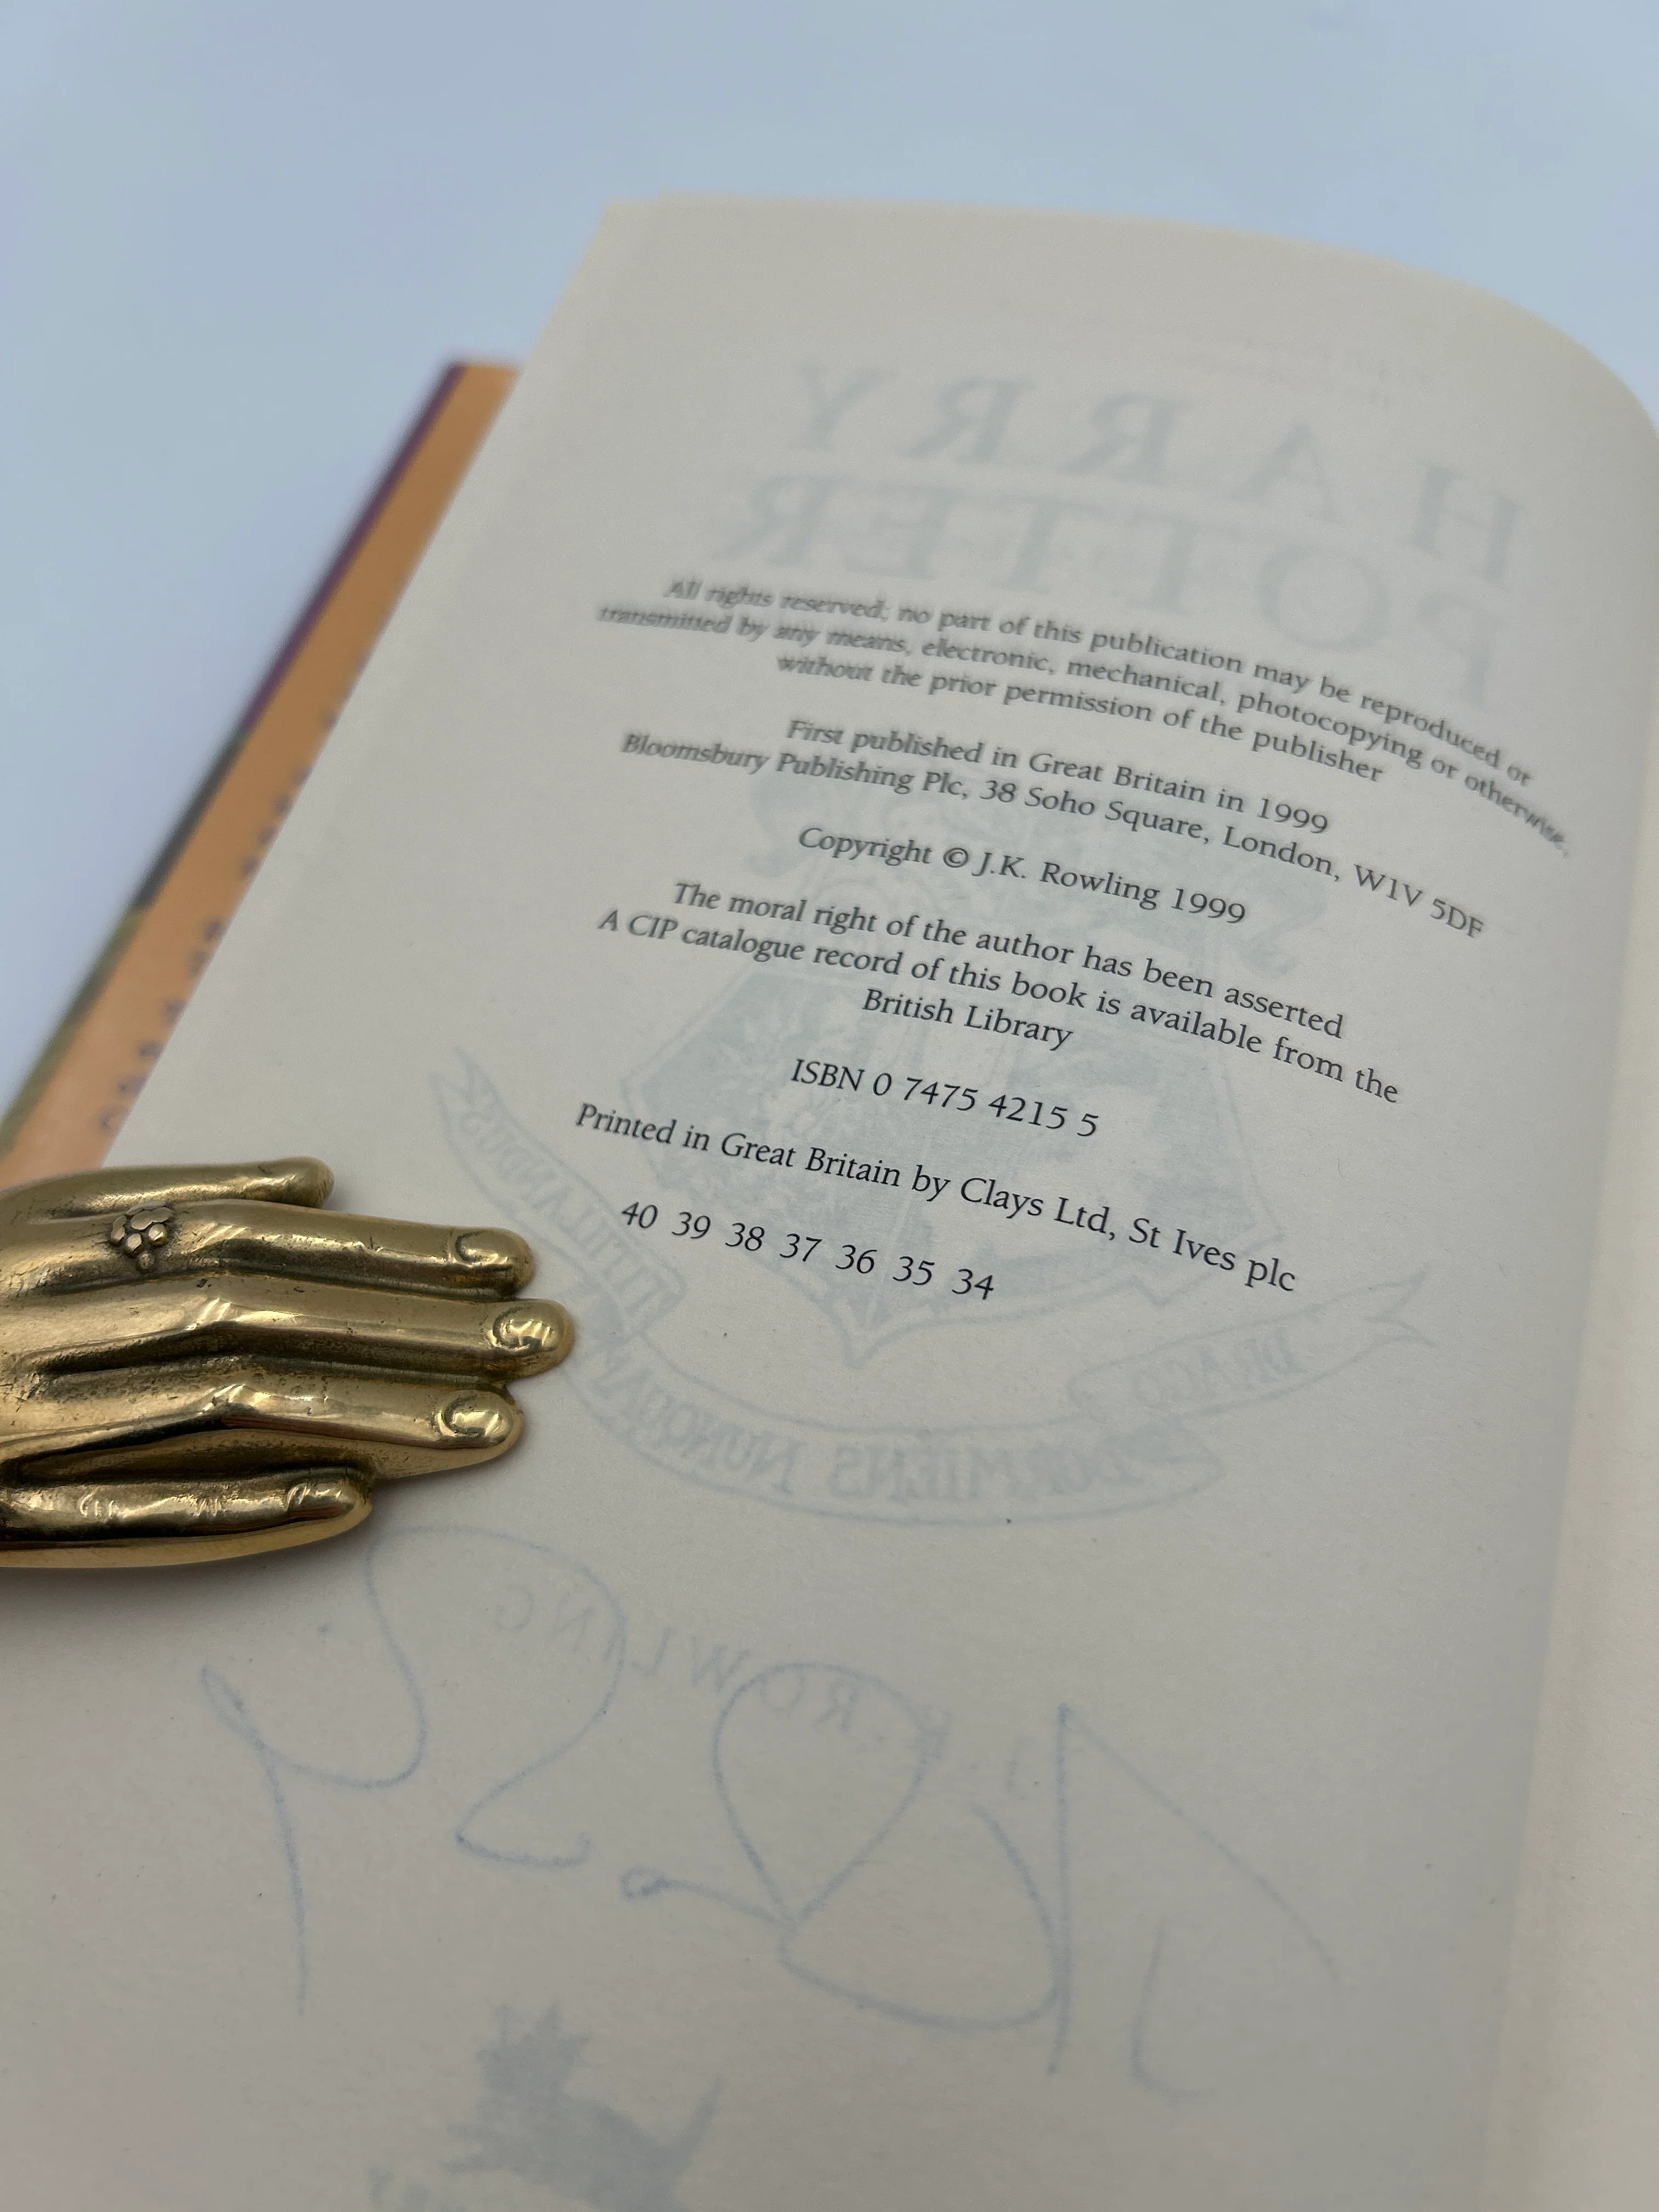 HARRY
POTTER
All rights reserved; no part of this publication may be reproduced or
transmitted by any means, electronic, mechanical, photocopying or otherwise,
without the prior permission of the publisher
First published in Great Britain in 1999
Bloomsbury Publishing Plc, 38 Soho Square, London, W1V 5DF
Copyright © J.K. Rowling 1999
The moral right of the author has been asserted
A CIP catalogue record of this book is available from the
British Library
ISBN 0 7475 4215 5
Printed in Great Britain by Clays Ltd, St Ives plc
40 39 38 37 36 35 34
DRACO DORMIENS NUNQUAM TITILLANDUS
J.K. ROWLING